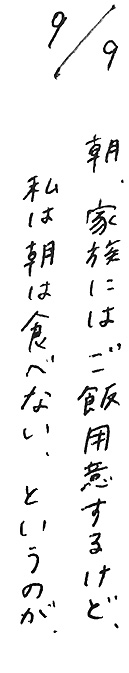 9/9
朝、家族にはご飯用意するけど、
私は朝は食べない、というのが、